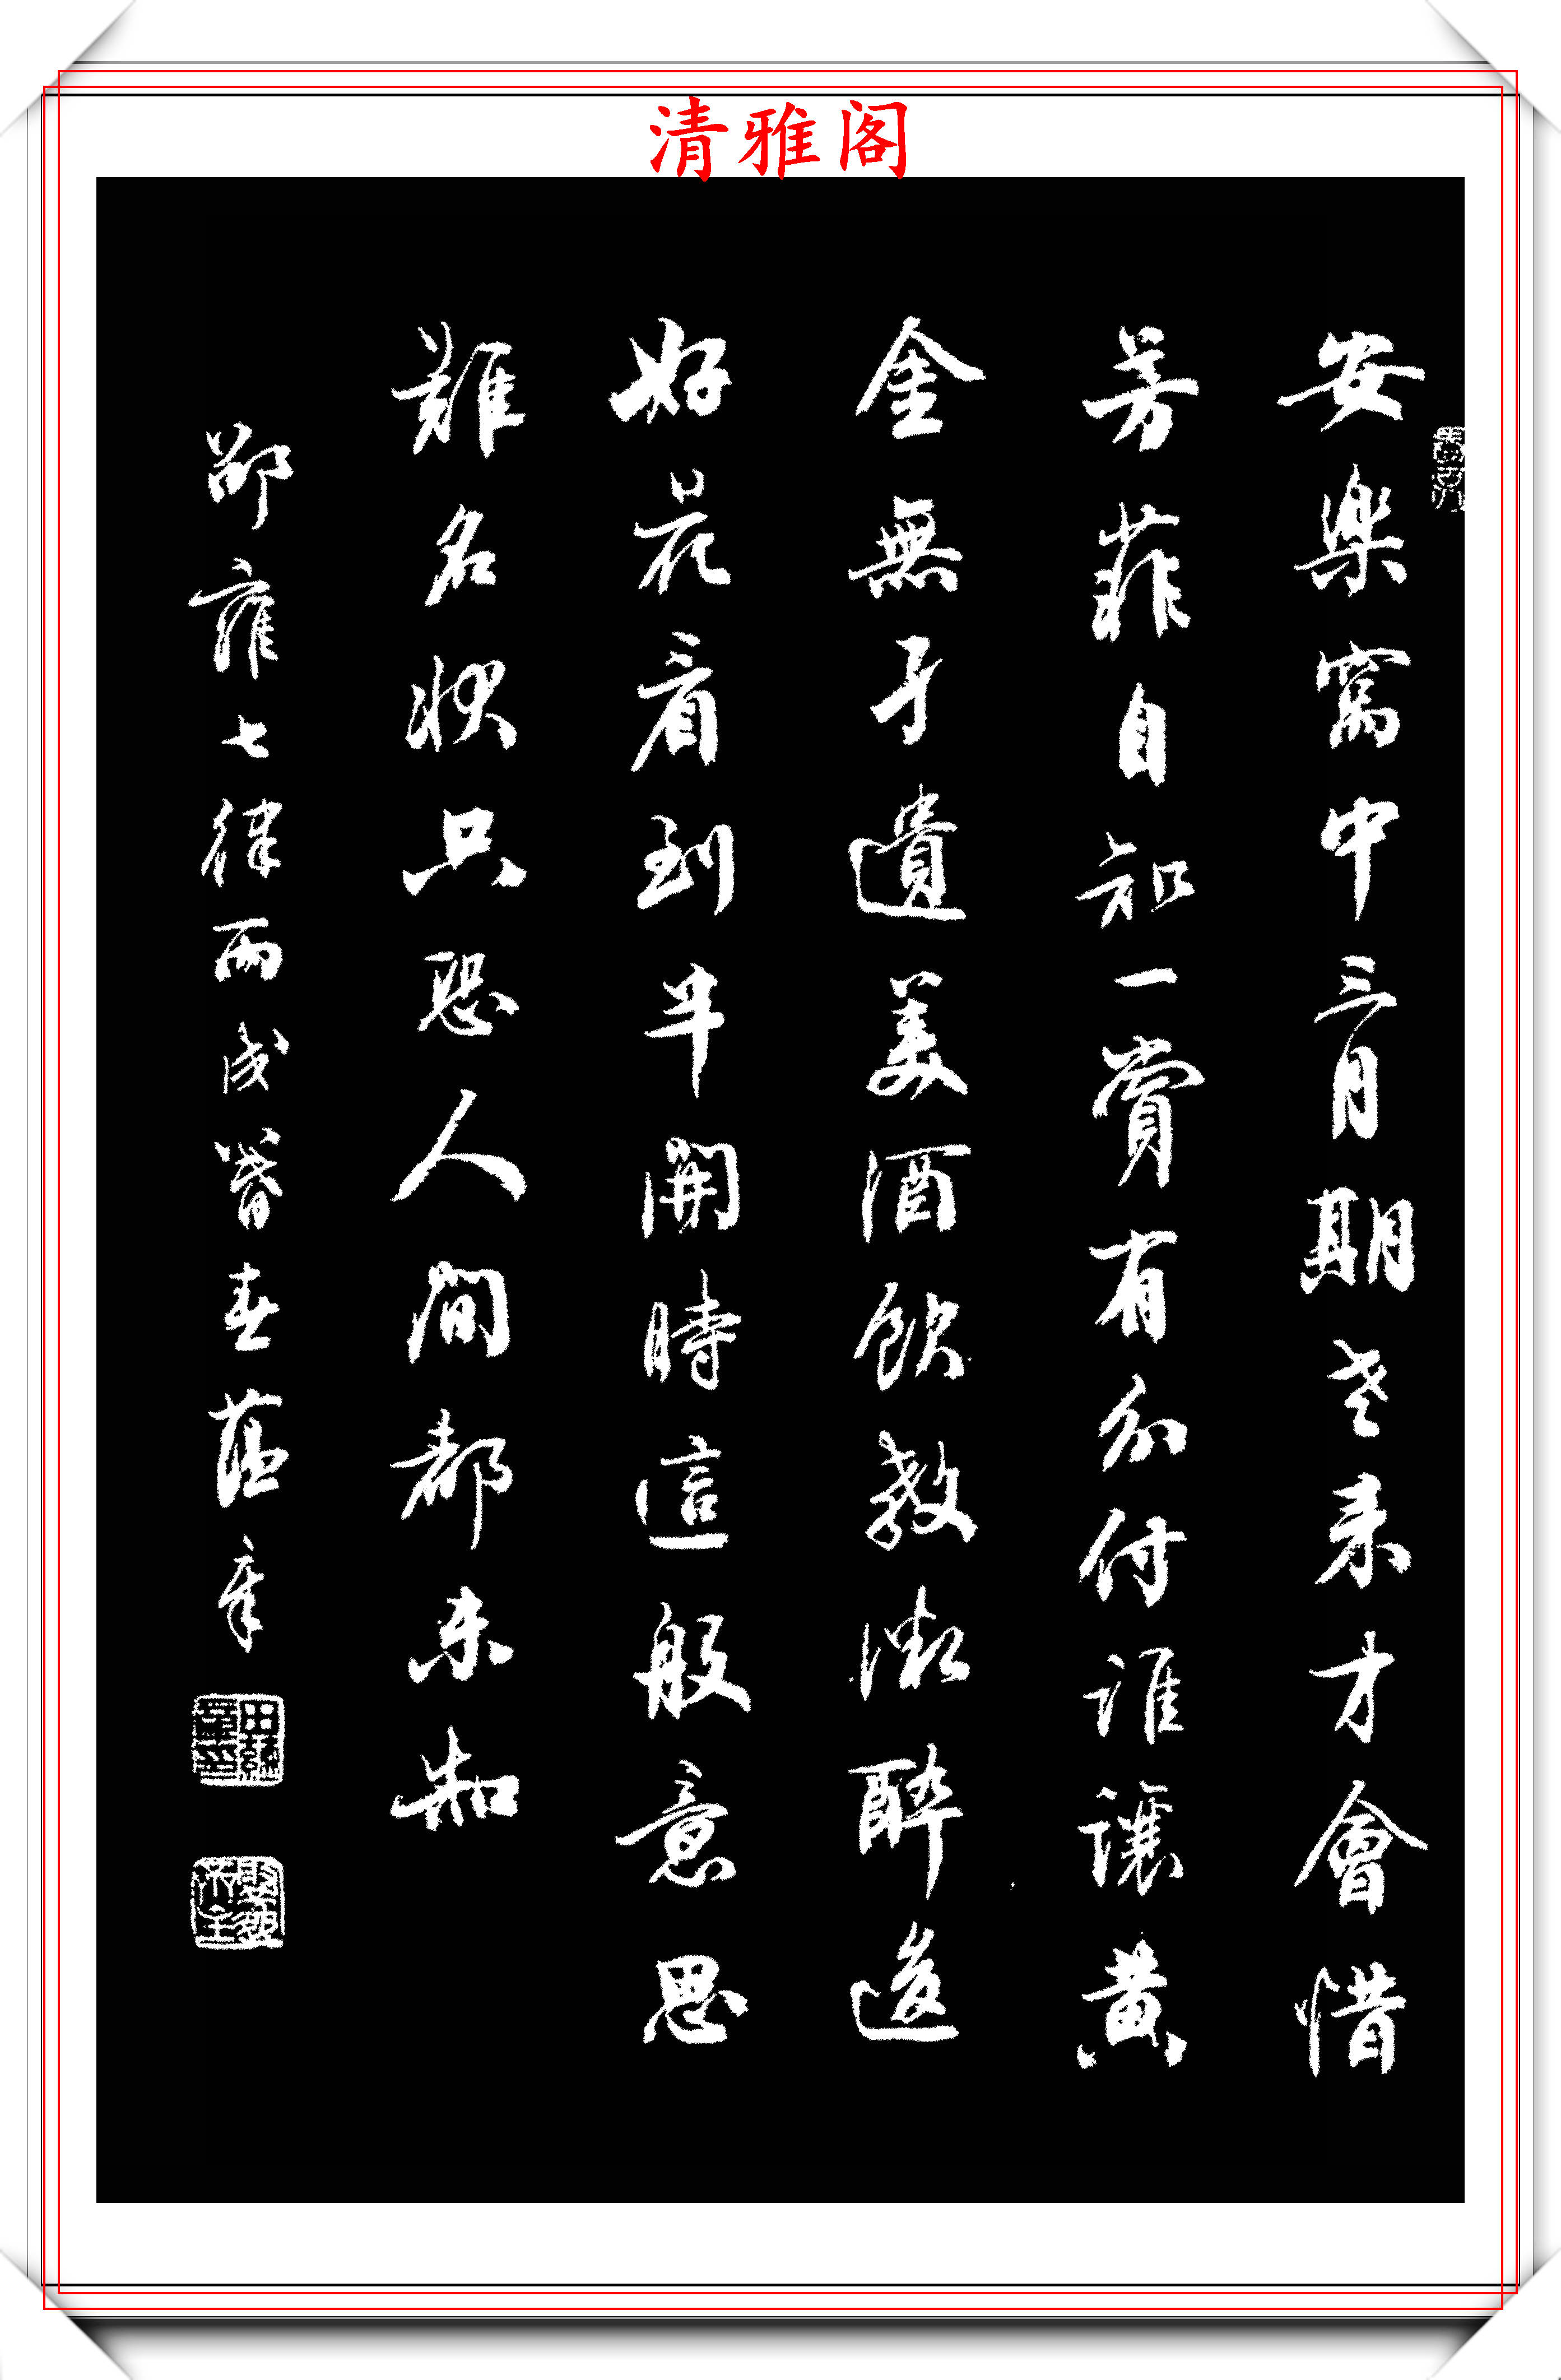 清雅阁
安樂窩中三月期老來才會惜
芳菲自知一賞有分付誰讓黃
金無孑遺美酒飲教微醉後
好花看到半開時這般意思
難名狀只恐人間都未知
邵雍七律丙戌暮春蘊章
田蘊章印